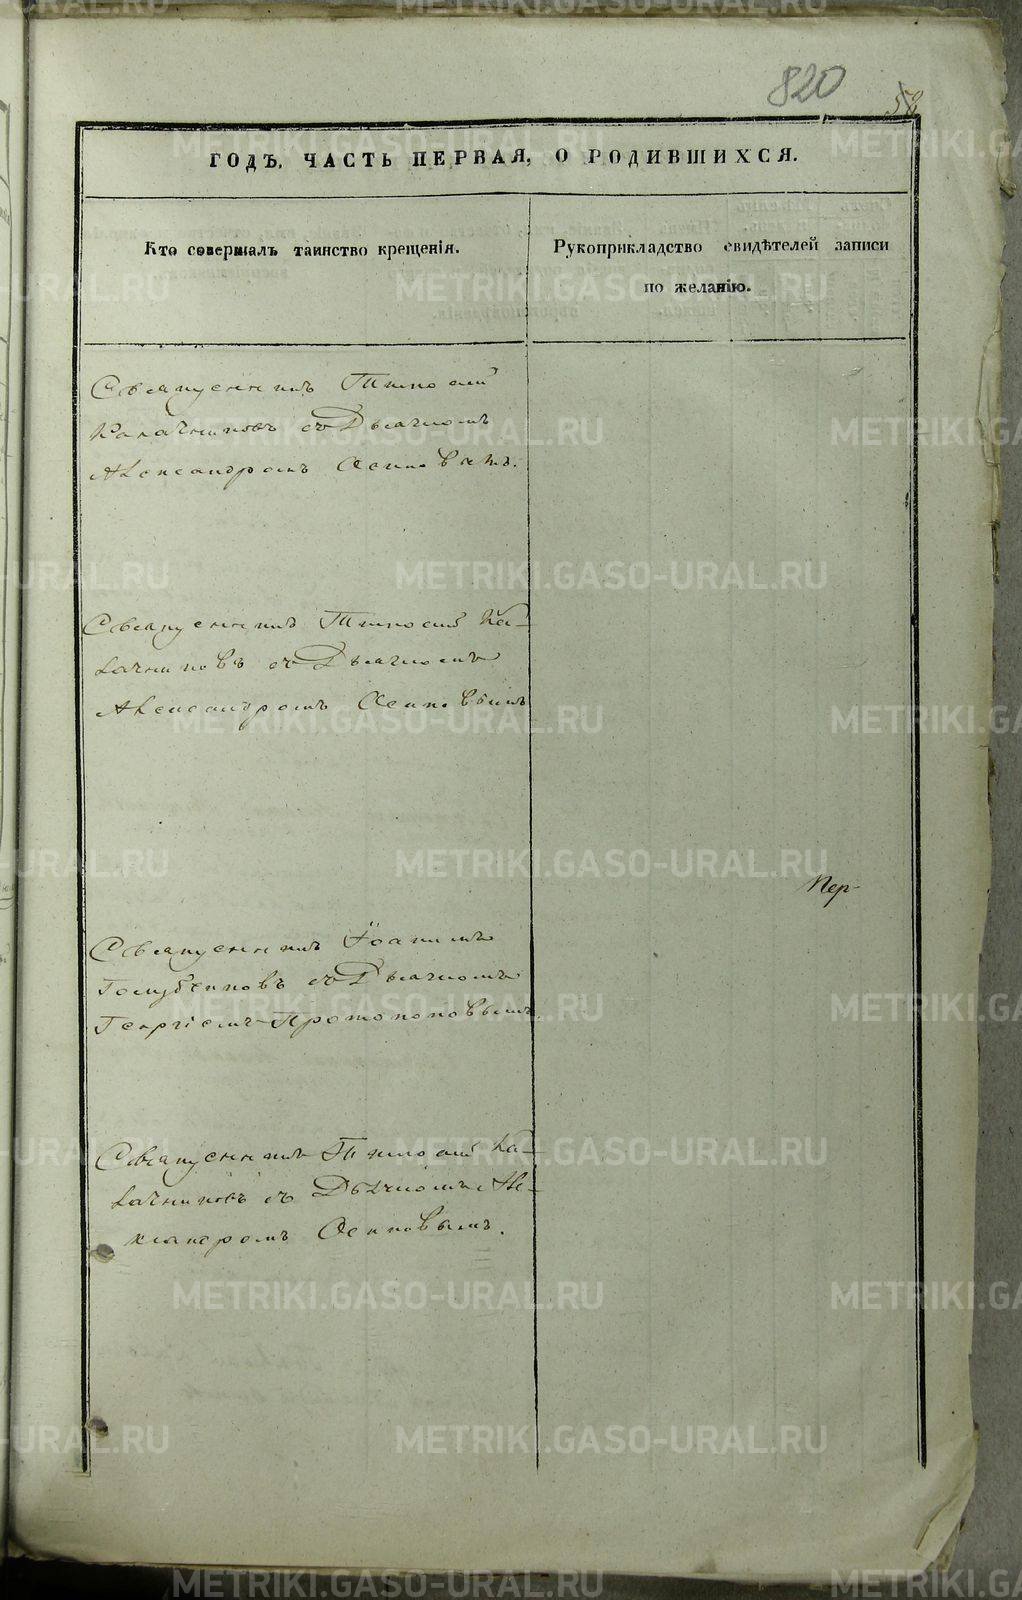 820
58
ГОДЪ, ЧАСТЬ ПЕРВАЯ, О РОДИВШИХСЯ.
Кто совершалъ таинство крещенія.
Рукоприкладство свидѣтелей записи
по желанію.
Священникъ Тимофей
Калачниковъ съ Дьячкомъ
Александромъ Осиповымъ.
Священникъ Тимофей Ка-
лачниковъ съ Дьячкомъ
Александромъ Осиповымъ
Пер-
Священникъ Іоаннъ
Голубчиковъ съ Дьячкомъ
Георгіемъ Протопоповымъ.
Священникъ Тимофей Ка-
лачниковъ съ Дьячкомъ Але-
ксандромъ Осиповымъ.
METRIKI.GASO-URAL.RU